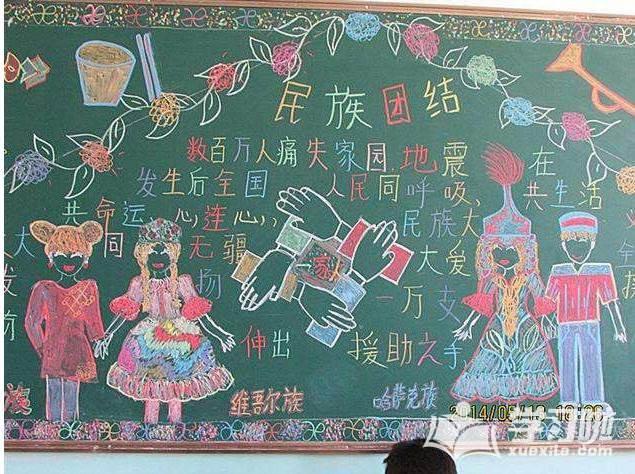 民族团结
数百万人痛失家园,地震在
发生后全国人民同呼吸、共生活
共命运、心连心,,民族大
大同无疆大爱
一家人
扬一万支
伸出援助之手
族 维吾尔族 哈萨克族
学习啦
xuexila.com